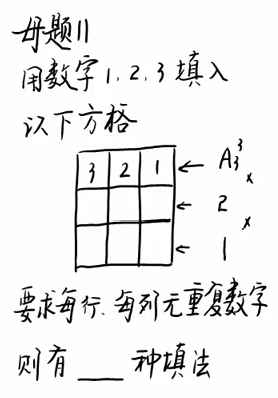 母题11
用数字1,2,3填入
以下方格
3 2 1 ← A₃³ ×
← 2 ×
← 1
要求每行、每列无重复数字
则有____种填法